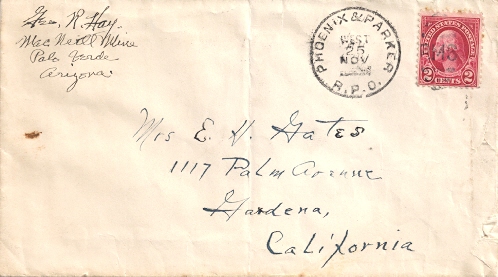 Geo. R. Hay.
MacNeill Mine
Palo Verde
Arizona
PHOENIX & PARKER
WEST
25
NOV
R.P.O.
UNITED STATES POSTAGE
2 CENTS 2
Mrs E. H. Gates
1117 Palm Avenue
Gardena,
California